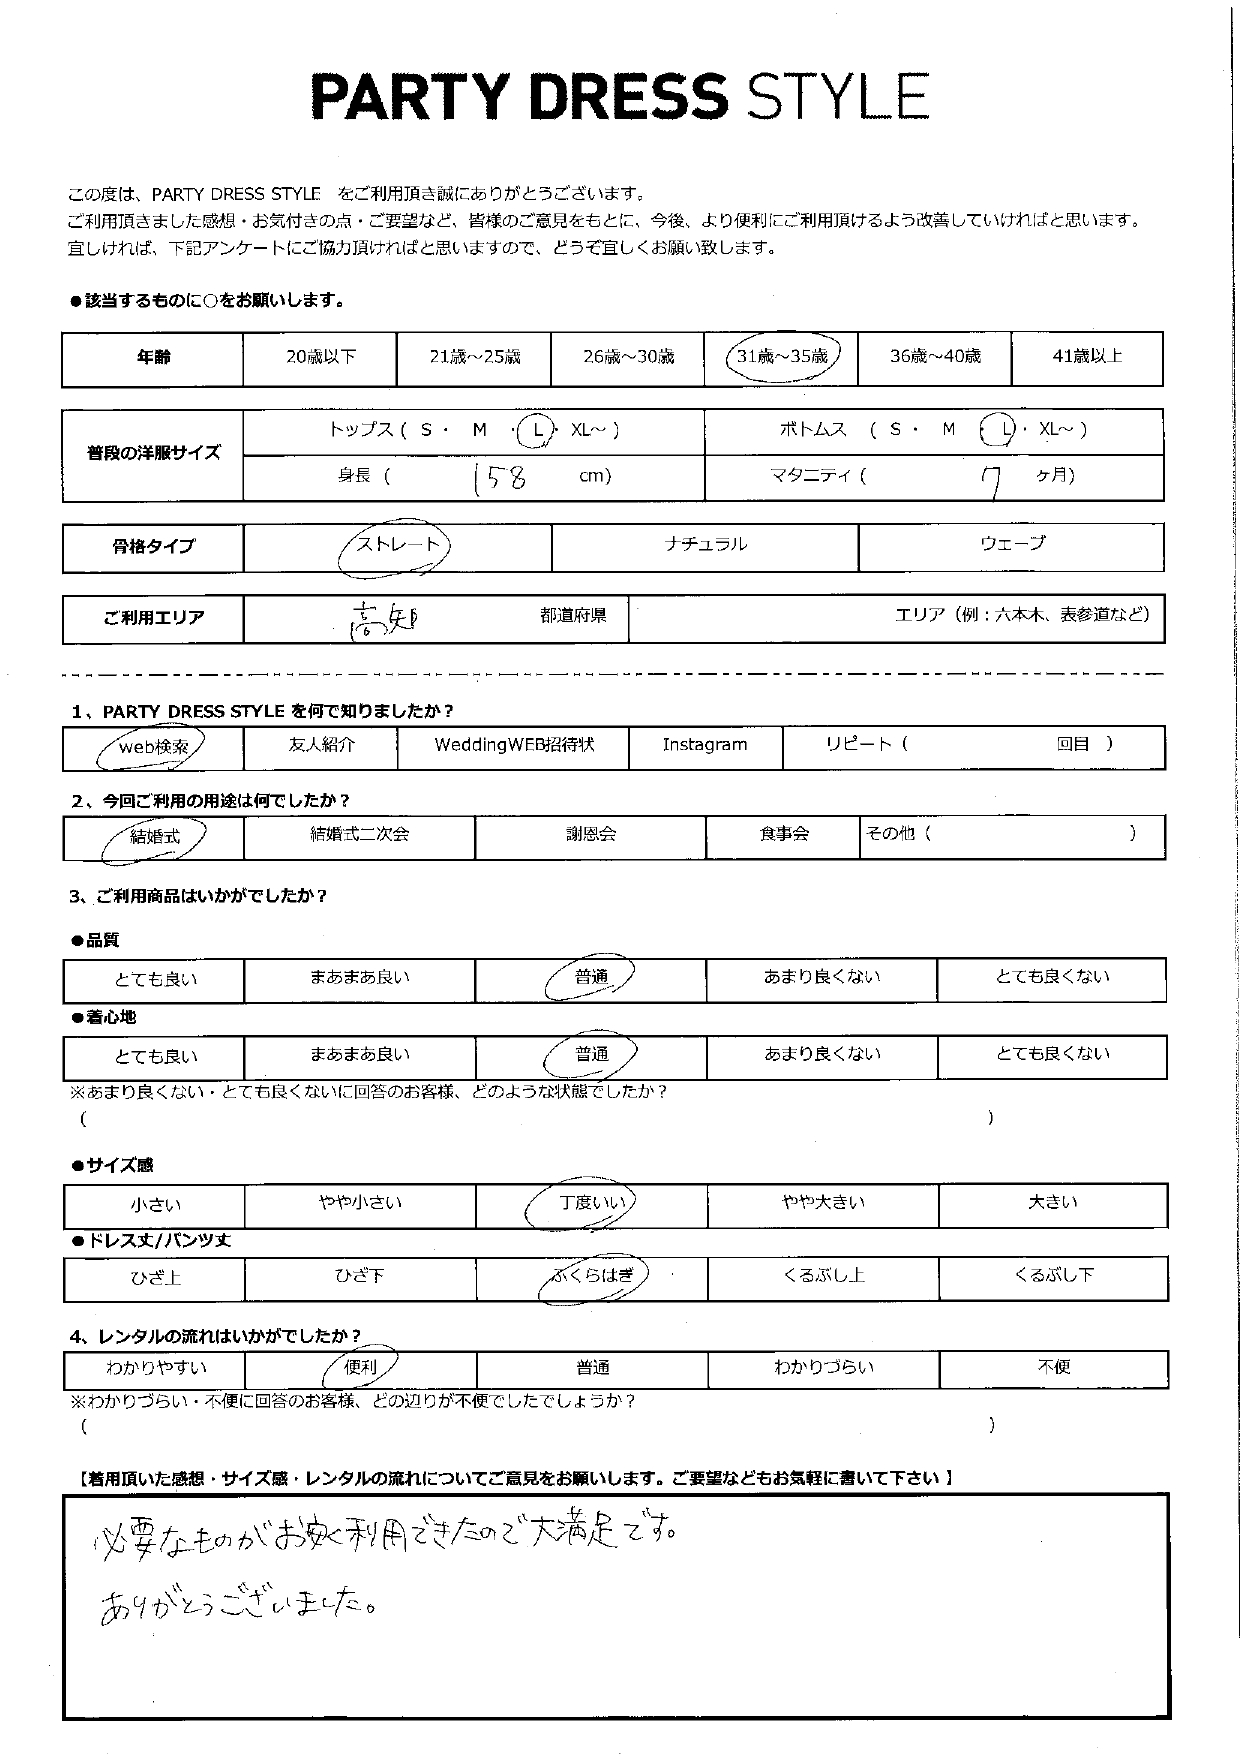 PARTY DRESS STYLE
この度は、PARTY DRESS STYLE をご利用頂き誠にありがとうございます。
ご利用頂きました感想・お気付きの点・ご要望など、皆様のご意見をもとに、今後、より便利にご利用頂けるよう改善していければと思います。
宜しければ、下記アンケートにご協力頂ければと思いますので、どうぞ宜しくお願い致します。
●該当するものに○をお願いします。
年齢 20歳以下 21歳～25歳 26歳～30歳 31歳～35歳 36歳～40歳 41歳以上
普段の洋服サイズ トップス ( S ・ M ・ L ・ XL～ ) ボトムス ( S ・ M ・ L ・ XL～ )
身長 ( 158 cm) マタニティ ( 7 ヶ月)
骨格タイプ ストレート ナチュラル ウェーブ
ご利用エリア 高知 都道府県 エリア（例：六本木、表参道など）
1、PARTY DRESS STYLE を何で知りましたか？
web検索 友人紹介 WeddingWEB招待状 Instagram リピート ( 回目 )
2、今回ご利用の用途は何でしたか？
結婚式 結婚式二次会 謝恩会 食事会 その他 ( )
3、ご利用商品はいかがでしたか？
●品質
とても良い まあまあ良い 普通 あまり良くない とても良くない
●着心地
とても良い まあまあ良い 普通 あまり良くない とても良くない
※あまり良くない・とても良くないに回答のお客様、どのような状態でしたか？
( )
●サイズ感
小さい やや小さい 丁度いい やや大きい 大きい
●ドレス丈/パンツ丈
ひざ上 ひざ下 ふくらはぎ くるぶし上 くるぶし下
4、レンタルの流れはいかがでしたか？
わかりやすい 便利 普通 わかりづらい 不便
※わかりづらい・不便に回答のお客様、どの辺りが不便でしたでしょうか？
( )
【着用頂いた感想・サイズ感・レンタルの流れについてご意見をお願いします。ご要望などもお気軽に書いて下さい】
必要なものがお安く利用できたので大満足です。
ありがとうございました。